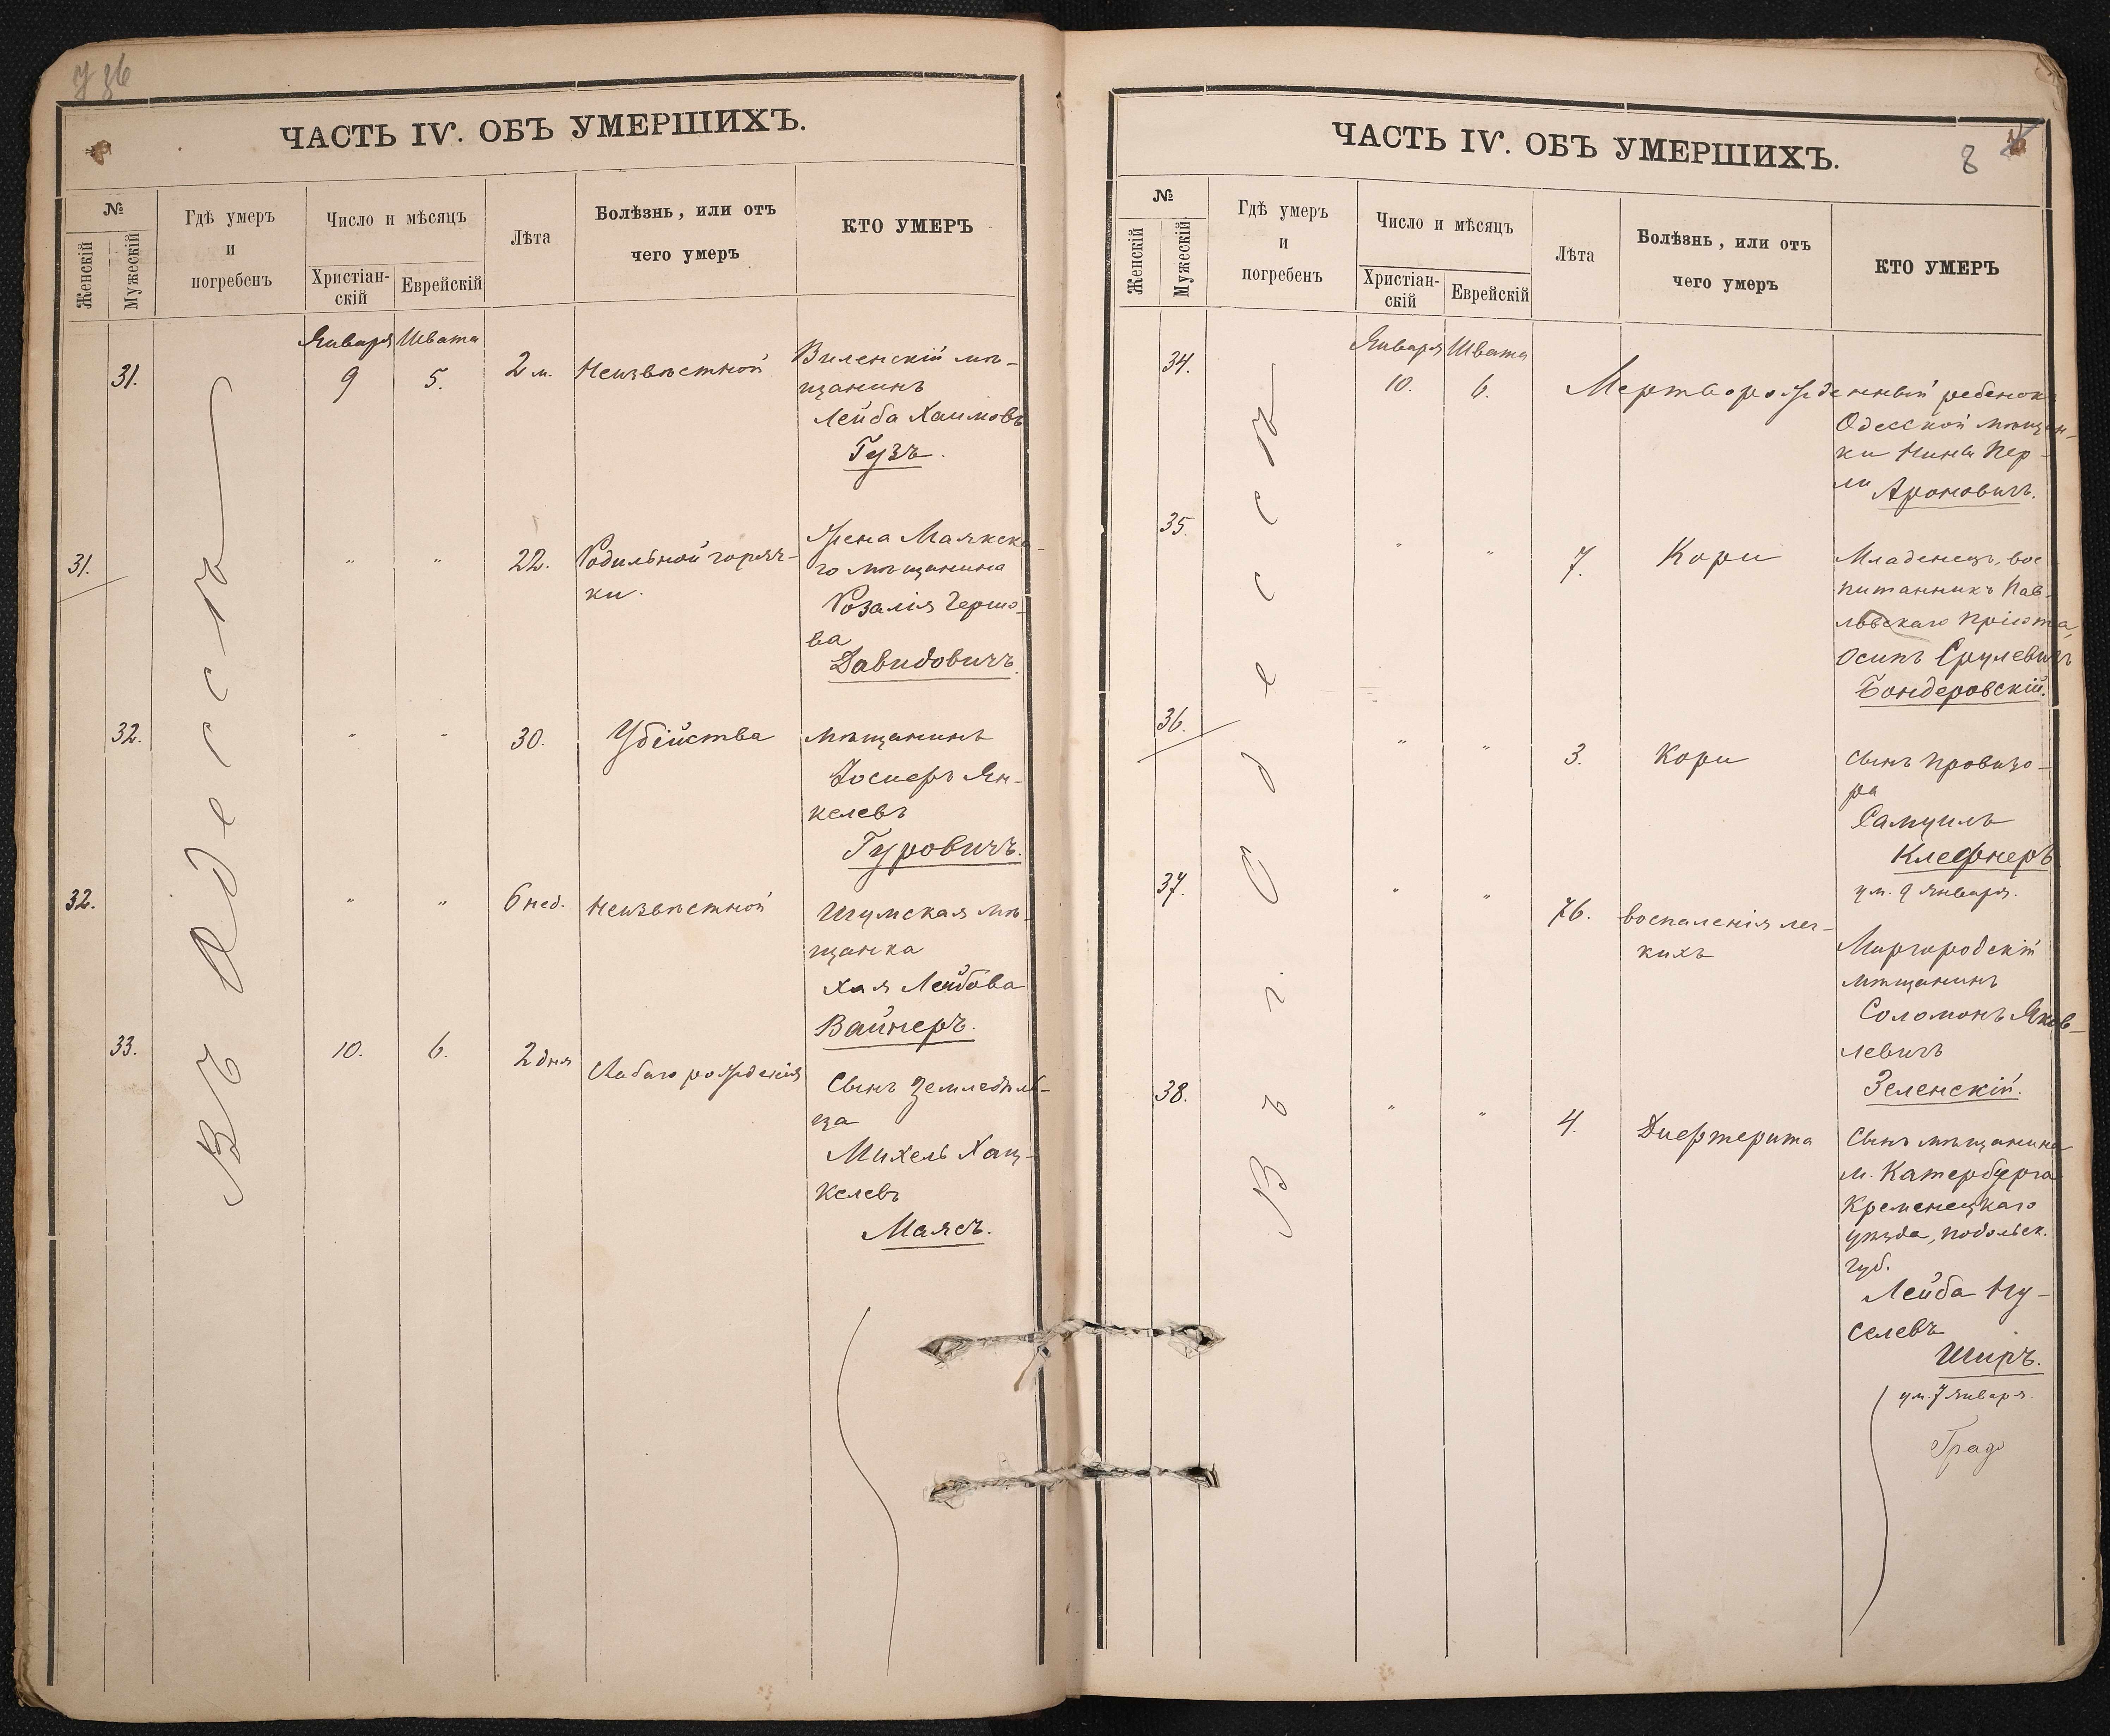 ЧАСТЬ IV. ОБЪ УМЕРШИХЪ.
№
Женскій
Мужескій
Гдѣ умеръ
и
погребенъ
Число и мѣсяцъ
Христіан-
скій
Еврейскій
Лѣта
Болѣзнь, или отъ
чего умеръ
КТО УМЕРЪ
Въ Одессѣ
Января Швата
31. 9 5. 2 м. Неизвѣстной Виленскій мѣ-
щанинъ
Лейба Хаимовъ
Гузъ.
31. " " 22. Родильной горяч-
ки.
Жена Маякска-
го мѣщанина
Розалія Гершо-
ва
Давидовичъ.
32. " " 30. Убійства мѣщанинъ
Іосиеръ Ян-
келевъ
Гуровичъ.
32. " " 6 нед. Неизвѣстной Шумская мѣ-
щанка
Хая Лейбова
Вайнеръ.
33. 10. 6. 2 дня Слабаго рожденія
Сынъ Земледѣль-
ца
Михель Хац-
келевъ
Маясъ.
ЧАСТЬ IV. ОБЪ УМЕРШИХЪ.
8
№
Женскій
Мужескій
Гдѣ умеръ
и
погребенъ
Число и мѣсяцъ
Христіан-
скій
Еврейскій
Лѣта
Болѣзнь, или отъ
чего умеръ
КТО УМЕРЪ
Въ г. Одессѣ
Января Швата
34. 10. 6. Мертворожденный ребенокъ
Одесской мѣщан-
ки Нины Пер-
ли
Ароновичъ.
35. " " 7. Кори Младенецъ, вос
питанникъ Пав-
ловскаго Пріюта,
Осипъ Срулевичъ
Бондеровскій.
36. " " 3. Кори Сынъ провизо-
ра
Самуилъ
Клефнеръ
ум. 9 Января.
37. " " 76. воспаленія лег-
кихъ
Миргородскій
мѣщанинъ
Соломонъ Яков-
левичъ
Зеленскій.
38. " " 4. Дифтерита Сынъ мѣщанина
м. Катербурга
Кременецкаго
уѣзда, Подольск.
губ.
Лейба Ну-
селевъ
Широ.
ум. 7 Января.